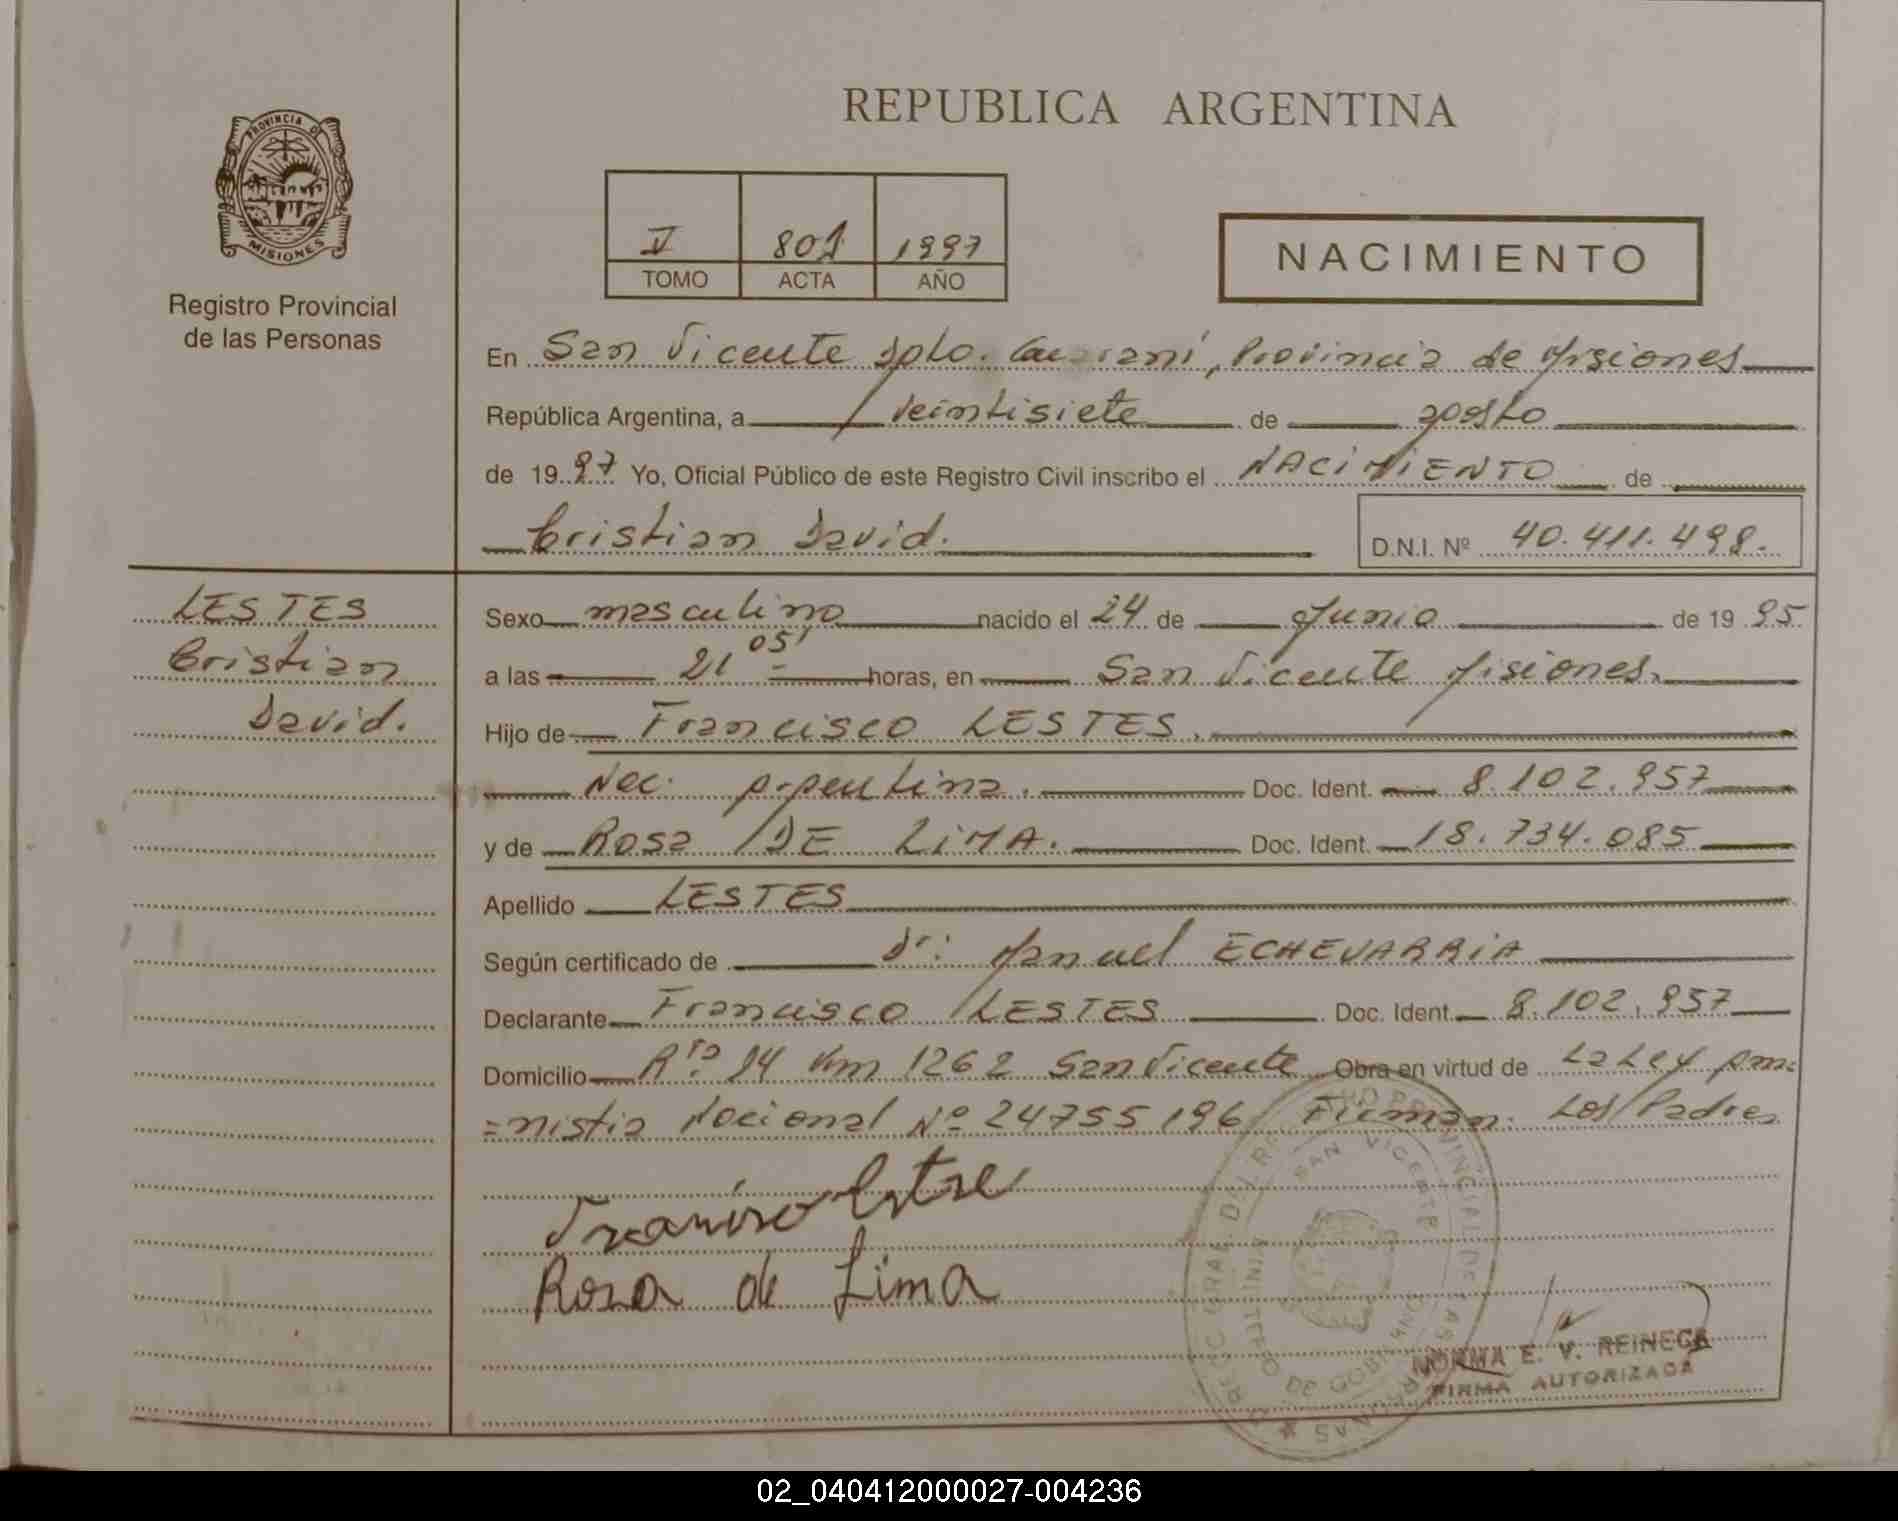 REPUBLICA ARGENTINA
PROVINCIA DE
MISIONES
Registro Provincial
de las Personas
V 801 1997
TOMO ACTA AÑO
NACIMIENTO
En San Vicente Dpto. Guaraní, Provincia de Misiones
República Argentina, a veintisiete de agosto
de 1997 Yo, Oficial Público de este Registro Civil inscribo el NACIMIENTO de
Cristian David. D.N.I. Nº 40.411.498.
LESTES
Cristian
David.
Sexo masculino nacido el 24 de Junio de 1995
a las 21 05' horas, en San Vicente Misiones.
Hijo de Francisco LESTES.
Nac. Argentina. Doc. Ident. 8.102.957
y de Rosa DE LIMA. Doc. Ident. 18.734.085
Apellido LESTES
Según certificado de Dr: Manuel ECHEVARRIA
Declarante Francisco LESTES Doc. Ident. 8.102.957
Domicilio Rta 14 Km 1262 San Vicente Obra en virtud de La Ley Am=
=nistia Nacional Nº 24755/96 Firman: Los Padres
Rosa de Lima
SAN VICENTE
NORMA E. V. REINECK
FIRMA AUTORIZADA
02_040412000027-004236